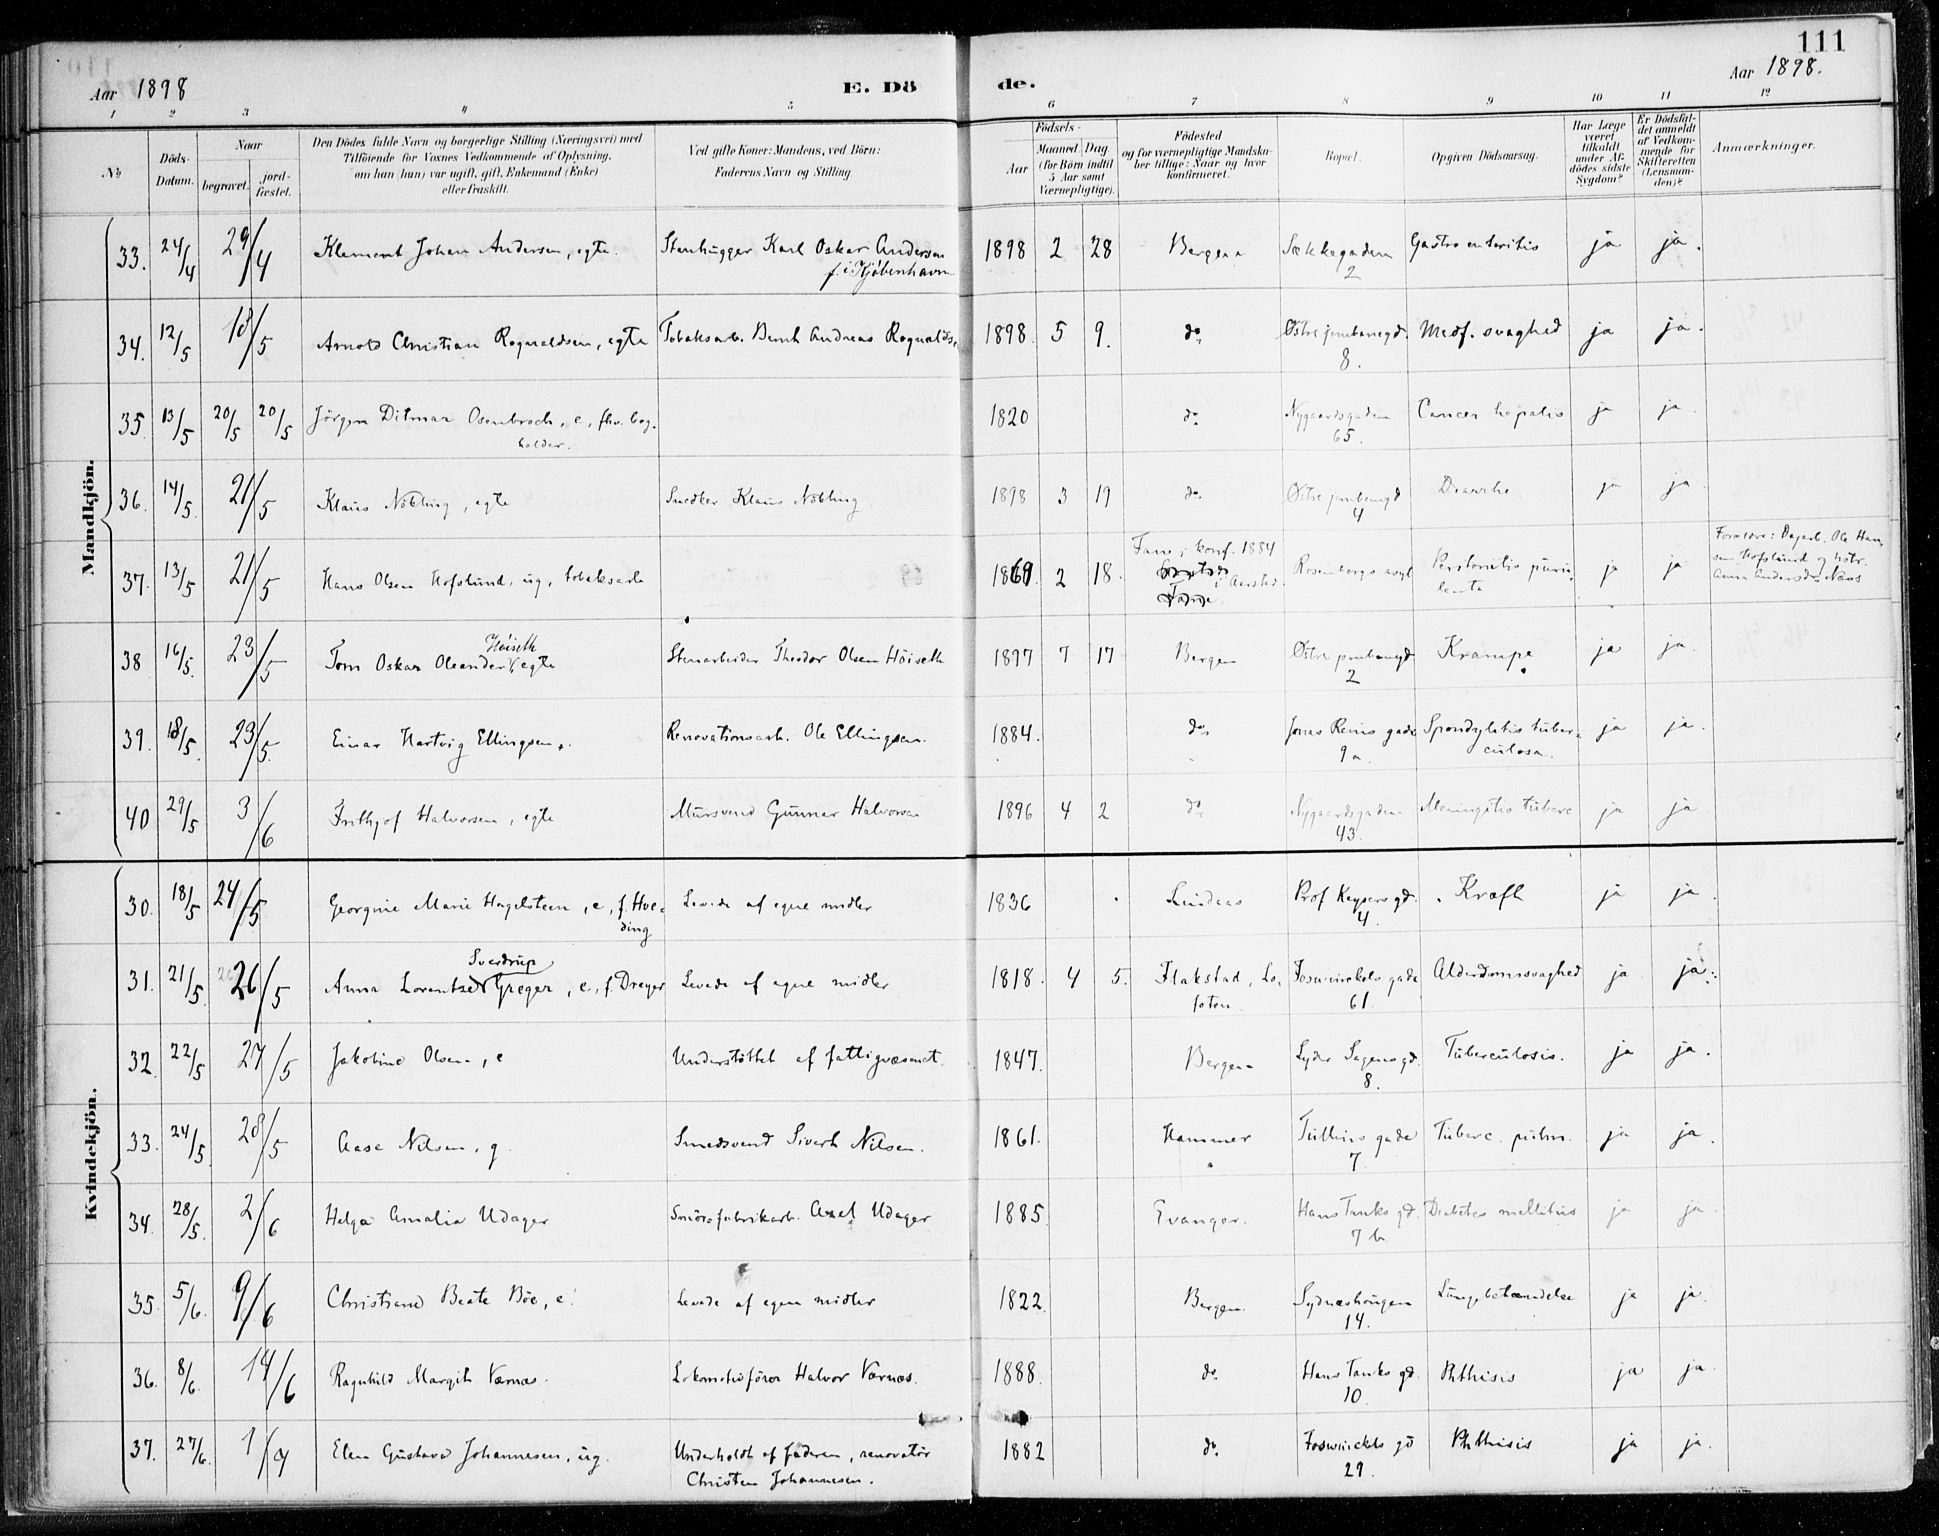 111
Aar 1898
E. Döde.
Aar 1898.
1 2 3 4 5 6 7 8 9 10 11 12
№
Döds-Datum.
Naar
begravet.
jordfæstet.
Den Dödes fulde Navn og borgerlige Stilling (Næringsvei) med
Tilföiende for Voxnes Vedkommende af Oplysning,
om han (hun) var ugift, gift, Enkemand (Enke)
eller fraskilt.
Ved gifte Koner: Mandens, ved Börn:
Faderens Navn og Stilling.
Födsels-
Aar
Maaned. Dag.
(for Börn indtil
5 Aar samt
Værnepligtige).
Födested
og for værnepligtige Mandskaber
tillige: Naar og hvor
konfirmeret.
Bopæl.
Opgiven Dödsaarsag.
Har Læge
været
tilkaldt
under Afdödes
sidste
Sygdom?
Er Dödsfaldet
anmeldt
af Vedkommende
for
Skifteretten
(Lensmanden)?
Anmærkninger.
Mandkjön.
33. 24/4 29/4 Klement Johan Andersen, egte. Stenhugger Karl Oskar Andersen f. i Kjöbenhavn 1898 2 28 Bergen Sækkegaden 2 Gastro enteritis ja ja.
34. 12/5 18/5 Arnold Christian Rognaldsen, egte Tobaksarb. Andreas Rognalds. 1898 5 9. do Østre jernbanegd. 8. Medf. svaghed ja ja.
35. 13/5 20/5 20/5 Jörgen Ditmar Osenbroch, e, fhv. bogholder. 1820 do Nygaardsgaden 65. Cancer hepatis ja ja
36. 14/5 21/5 Klaus Nöbling, egte Snedker Klaus Nöbling 1898 3 19 do. Østre jernbanegd 4 Diarrhe ja ja
37. 13/5 21/5 Hans Olsen Hofslund, ug, tobaksarb 1869 2 18. Fane; konf. 1884 i Aarstad. Rosenbergs asyl Peritonitis purulenta ja ja Forældre: Dagarb. Ole Hansen Hofslund og hstr. Anna Andersd. Næss
38 16/5. 23/5 Tom Oskar Oleander Höiseth, egte Stenarbeider Theodor Olsen Höiseth 1897 7 17 Bergen Østre jernbanegd 2 Krampe ja ja.
39. 18/5. 23/5. Einar Hartvig Ellingsen. Renovationsarb. Ole Ellingsen. 1884. do. Jonas Reins gade 9a. Spondylitis tuberculosa. ja ja.
40 29/5 3/6 Frithjof Halvorsen, egte Mursvend Gunnar Halvorsen 1896 4 2 do Nygaardsgaden 43. Meningitis tuberc ja ja
Kvindekjön.
30. 18/5 24/5 Georgine Marie Hagelsteen, e, f. Hveding Levede af egne midler 1836 Lindaas Prof Keysers gd. 4. Kræft ja ja.
31. 21/5. 26/5 Anna Lorentse Sverdrup Greger, e, f. Dreyer Levede af egne midler 1818. 4 5. Flakstad, Lofoten. Foswinckels gade 61. Alderdomssvaghed ja ja.
32. 22/5 27/5 Jakobine Olsen, e Understöttet af fattigvæsenet. 1847. Bergen Lyder Sagens gd. 8. Tuberculosis. ja ja.
33. 24/5. 28/5 Aase Nilsen, g. Smedsvend Sivert Nilsen. 1861. Hammer Tullins gade 7. Tuberc. pulm. ja ja.
34. 28/5. 2/6 Helga Amalia Udager Smörfabrikarb. Axel Udager 1885 Evanger. Hans Tanks gd. 7 b. Diabetes mellitus ja ja.
35. 5/6. 9/6 Christiane Beate Böe, e. Levede af egne midler 1822. Bergen. Sydneshaugen 14. Lungebetændelse ja ja.
36. 8/6. 14/6 Ragnhild Margith Værnæs. Lokomotivförer Halvor Værnæs. 1888. do. Hans Tanks gd. 10. Phthisis ja ja.
37. 27/6. 1/ Elen Gustava Johannesen, ug. Underholdt af faderen, renovatör Christen Johannesen. 1882 do. Foswinckels gd 29. Phthisis ja ja.